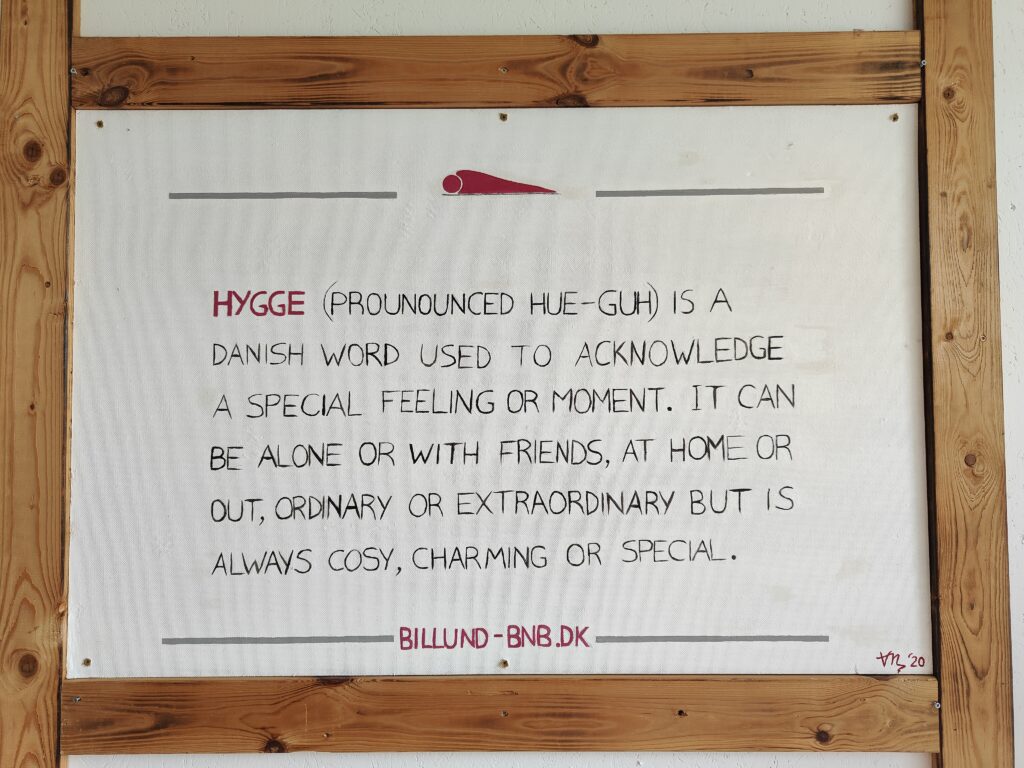 HYGGE (PROUNOUNCED HUE-GUH) IS A
DANISH WORD USED TO ACKNOWLEDGE
A SPECIAL FEELING OR MOMENT. IT CAN
BE ALONE OR WITH FRIENDS, AT HOME OR
OUT, ORDINARY OR EXTRAORDINARY BUT IS
ALWAYS COSY, CHARMING OR SPECIAL.
BILLUND-BNB.DK
'20